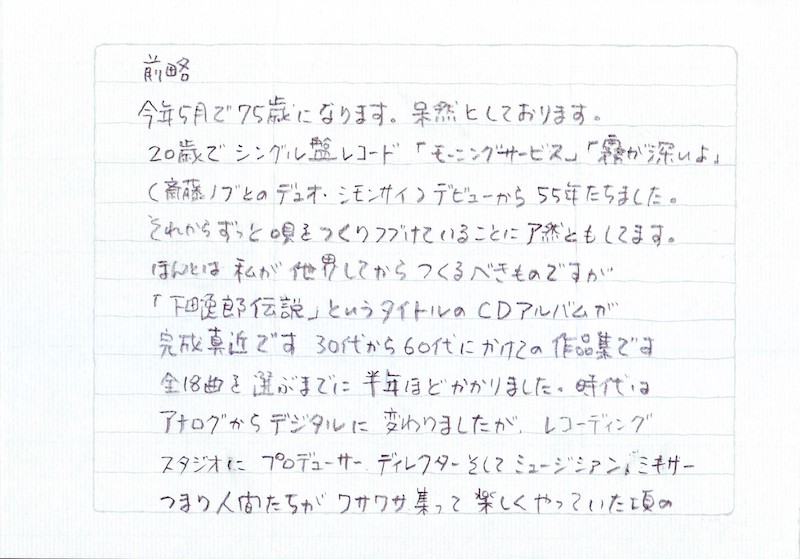 前略
今年5月で75歳になります。呆然としております。
20歳でシングル盤レコード「モーニングサービス」「霧が深いよ」
（斎藤ノブとのデュオ・シモンサイ）デビューから55年たちました。
それからずっと唄をつくりつづけていることに了然ともしてます。
ほんとは私が他界してからつくるべきものですが
「下田逸郎伝説」というタイトルのCDアルバムが
完成真近です 30代から60代にかけての作品集です
全18曲を選ぶまでに半年ほどかかりました。時代は
アナログからデジタルに変わりましたが、レコーディング
スタジオに プロデューサー ディレクターそしてミュージシアン、ミキサー
つまり人間たちがワサワサ集って楽しくやっていた頃の